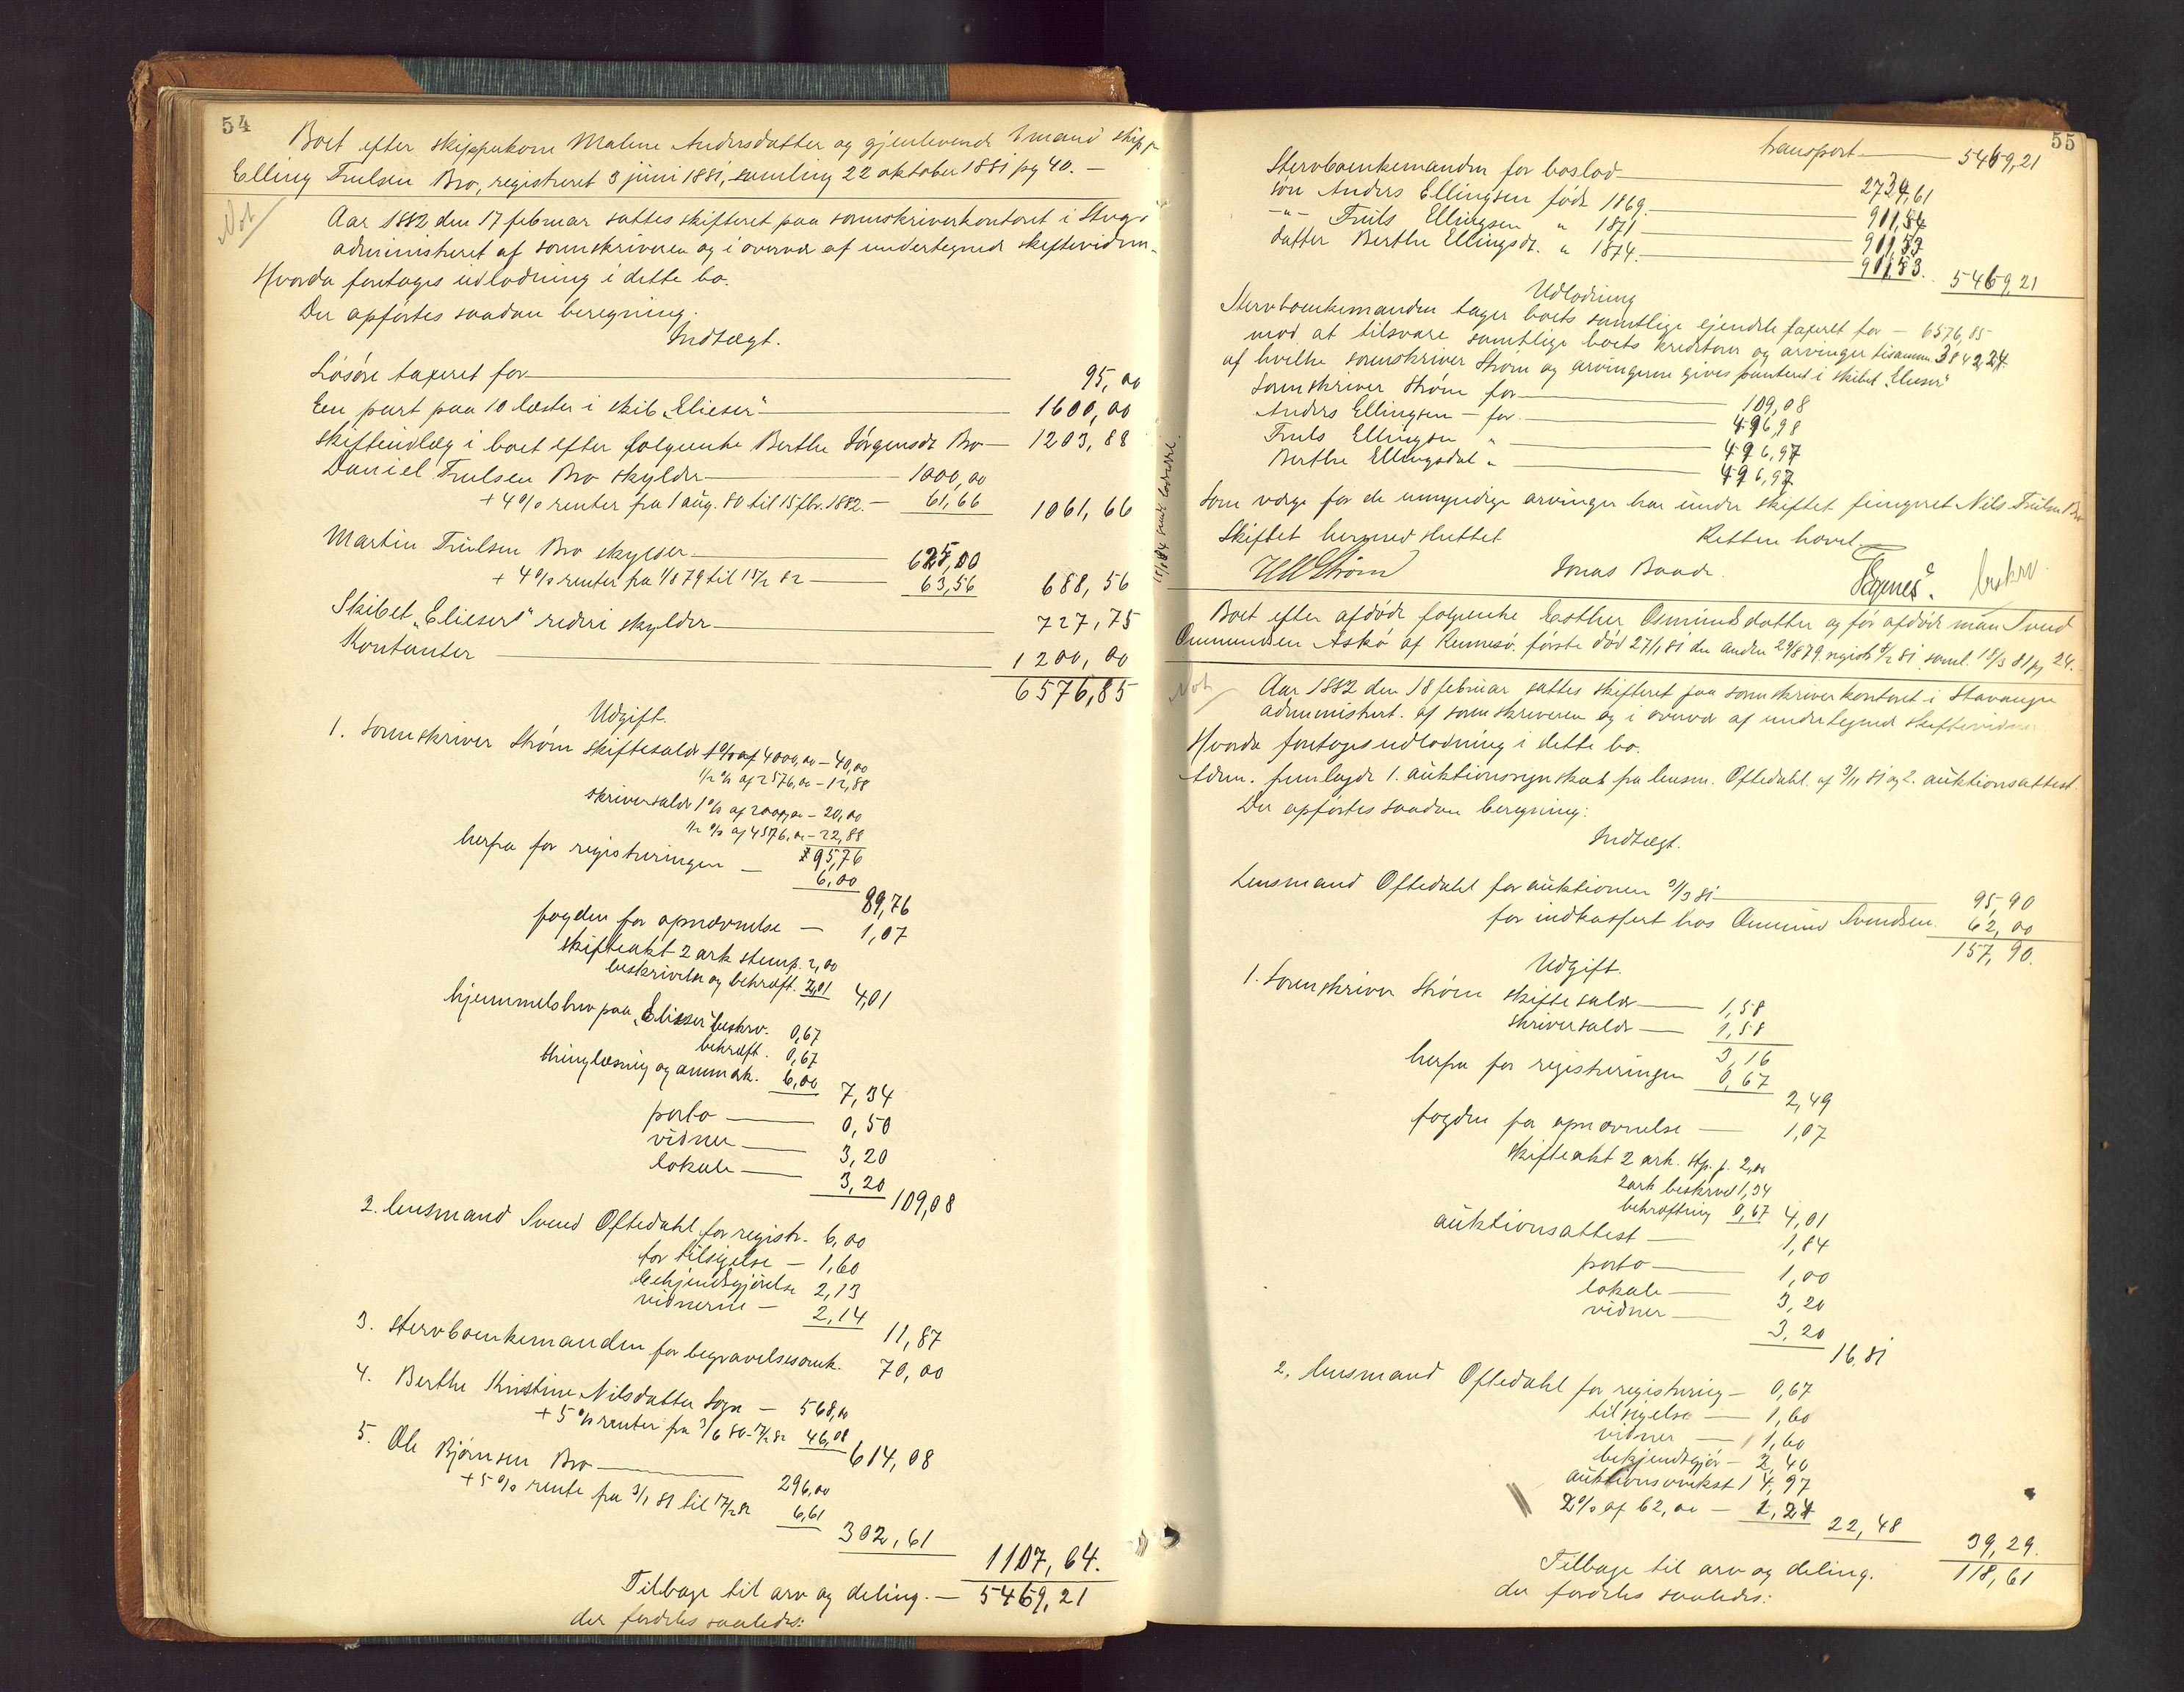 54
Boet efter skipperkone Malene Andersdatter og gjenlevende Emand skipp
Elling Trulsen Bro, registreret 3 juni 1881, samling 22 oktober 1881 pg 40. —
Not
Aar 1882 den 17 februar sattes skifteret paa sorenskriverkontoret i Stvgr
administreret af sorenskriveren og i overvær af undertegnede skiftevidner.
Hvorda foretoges udlodning i dette bo.
Der opførtes saadan beregning:
Indtægt.
Løsøre taxeret for — 95,00
Een part paa 10 læster i skib „Elieser" — 1600,00
Skifteudlæg i boet efter folgeenke Berthe Jørgensdr Bro — 1203,88
Daniel Trulsen Bro skylder — 1000,00
+ 4% renter fra 1 aug. 80 til 15 fbr. 1882. — 61,66 1061,66
Martin Trulsen Bro skylder — 625,00
+ 4% renter fra 1/8 79 til 15/2 82 — 63,56 688,56
Skibet „Eliesers" rederi skylder — 727,75
Kontanter — 1200,00
6576,85
Udgift.
1. Sorenskriver Strøm skiftesalær 1% af 4000,00 — 40,00
1/2 % af 2576,00 — 12,88
skriversalær 1% af 2000,00 — 20,00
1/2 % af 4576,00 — 22,88
95,76
herfra for registreringen — 6,00
89,76
fogden for opnævnelse — 1,07
skifteakt 2 ark stemp. 2,00
beskrivelse og bekræft. 2,01 4,01
hjemmelsbrev paa „Elieser" beskrv. 0,67
bekræft. 0,67
thinglæsning og anmærk. 6,00
7,34
porto — 0,50
vidner — 3,20
lokale — 3,20
109,08
2. lensmand Svend Oftedahl for registr. 6,00
for tilsigelse — 1,60
bekjendtgjørelse 2,13
vidnerne — 2,14
11,87
3. Stervboenkemanden for begravelsesomk. 70,00
4. Berthe Kristine Nilsdatter Sogn — 568,00
+ 5% renter fra 3/6 80 – 17/2 82 46,08 614,08
5. Ole Bjørnsen Bro — 296,00
+ 5% rente fra 3/1 81 til 17/2 82 6,61
302,61
1107,64.
Tilbage til arv og deling. — 5469,21
der fordeles saaledes:
55
transport — 5469,21
Stervboenkemanden for boslod — 2734,61
søn Anders Ellingsen født 1869. — 911,54
—„— Truls Ellingsen „ 1871 — 911,53
datter Berthe Ellingsdr. „ 1874. — 911,53. 5469,21
Udlodning
Stervboenkemanden tager boets samtlige ejendele taxeret for — 6576,85
mod at tilsvare samtlige boets kreditorer og arvinger tilsammen 3842,24.
af hvilke sorenskriver Strøm og arvingerne gives panteret i skibet „Elieser"
Sorenskriver Strøm for — 109,08
Anders Ellingsen — for — 496,98
Truls Ellingsen „ — 496,97
Berthe Ellingsdat „ — 496,97
Som værge for de umyndige arvinger har under skiftet fungeret Nils Trulsen Bro
Skiftet hermed sluttet Retten hævet.
Strøm Jonas Baade. beskrv.
Boet efter afdøde folgeenke Esther Osmundsdatter og før afdøde man Svend
Ommundsen Askø af Rennesø. første død 27/1 81 den anden 29/8 79. registr 8/2 81 saml. 18/3 81 pg 24.
Not
Aar 1882 den 18 februar sattes skifteret paa sorenskriverkontoret i Stavanger
administrert. af sorenskriveren og i overvær af undertegnede skiftevidner
Hvorda foretoges udlodning i dette bo.
Adm. fremlagde 1. auktionsregnskab fra lensm. Oftedahl. af 3/11 81 og 2. auktionsattest.
Der opførtes saadan beregning:
Indtægt.
Lensmand Oftedahl for auktionen 21/3 81 — 95,90
for indkassert hos Ommund Svendsen. 62,00
157,90.
Udgift.
1. Sorenskriver Strøm skiftesalær — 1,58
skriversalær — 1,58
3,16
herfra for registreringen 0,67
2,49
fogden for opnævnelse — 1,07
skifteakt 2 ark. stp. p. 2,00
2 ark beskrevet 1,34
bekræftning 0,67 4,01
auktionsattest — 1,84
porto — 1,00
lokale — 3,20
vidner — 3,20
16,81
2. lensmand Oftedahl for registrering — 0,67
tilsigelse — 1,60
vidner — 1,60
bekjendtgjør — 2,40
auktionsomkst 14,97
2% af 62,00 — 1,24 22,48
39,29.
Tilbage til arv og deling. 118,61
der fordeles saaledes: